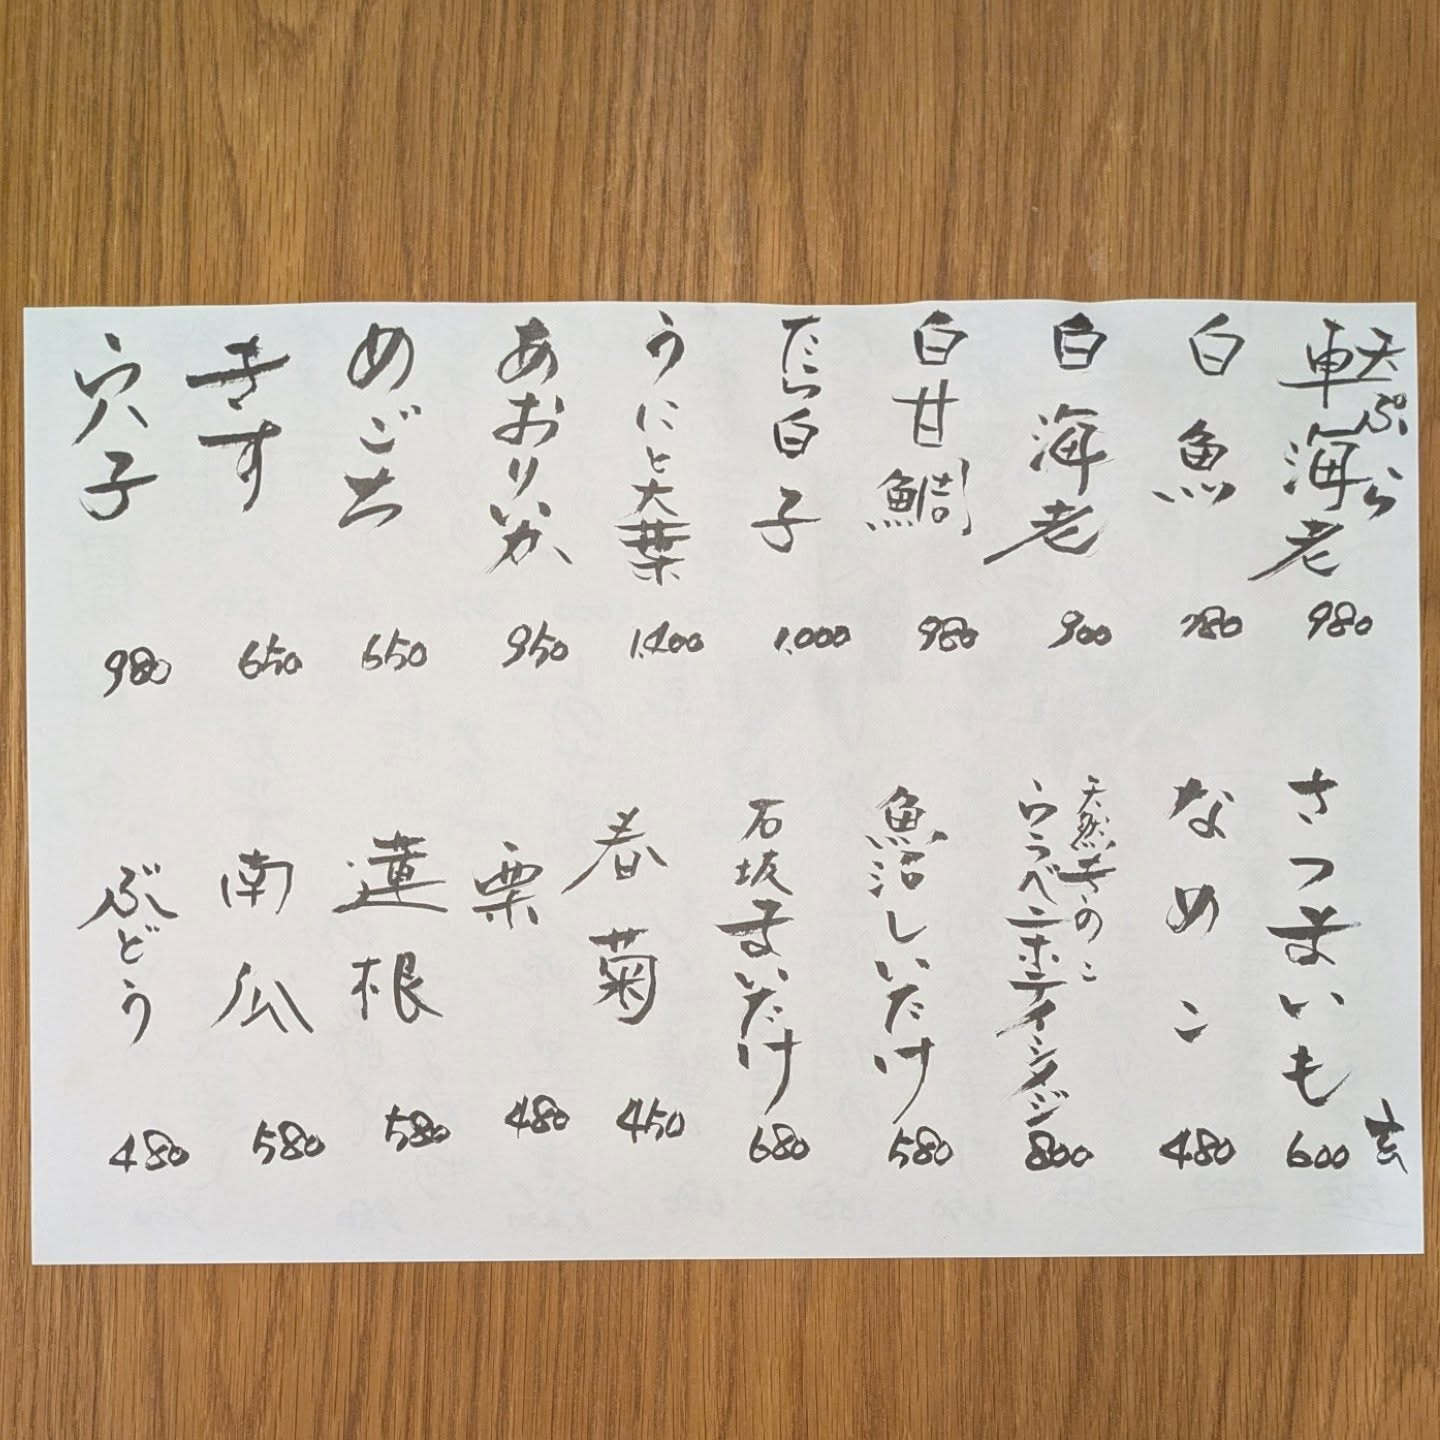 天ぷら
車海老 980
白魚 780
白海老 900
白甘鯛 980
たら白子 1.000
うにと大葉 1.400
あおりいか 950
めごち 650
きす 650
穴子 980
さつまいも 600
なめこ 480
天然きのこ
ウラベニホテイシメジ 800
魚沼しいたけ 580
石坂まいたけ 680
春菊 450
栗 480
蓮根 580
南瓜 580
ぶどう 480